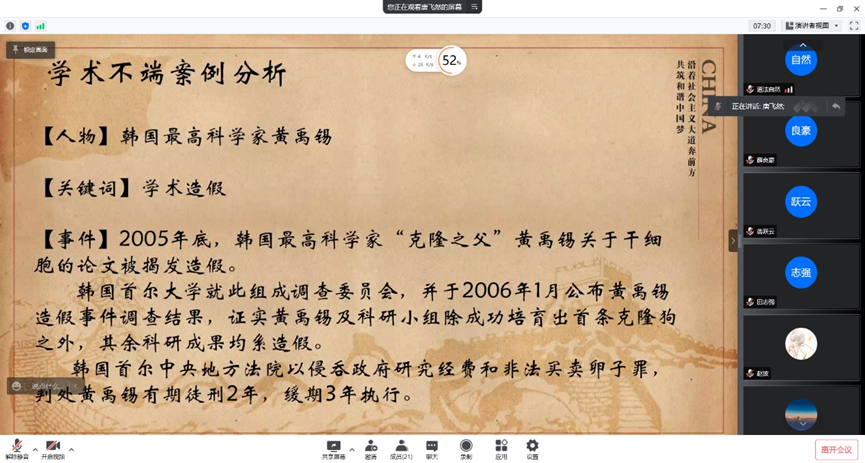 您正在观看唐飞然的屏幕
07:30
演讲者视图
锁定画面
52%
学术不端案例分析
沿着社会主义大道奔前方
共筑和谐中国梦
CHINA
【人物】韩国最高科学家黄禹锡
【关键词】学术造假
【事件】2005年底，韩国最高科学家“克隆之父”黄禹锡关于干细
胞的论文被揭发造假。
韩国首尔大学就此组成调查委员会，并于2006年1月公布黄禹锡
造假事件调查结果，证实黄禹锡及科研小组除成功培育出首条克隆狗
之外，其余科研成果均系造假。
韩国首尔中央地方法院以侵吞政府研究经费和非法买卖卵子罪，
判处黄禹锡有期徒刑2年，缓期3年执行。
说点什么...
自然
道法自然
正在讲话: 唐飞然;
良豪
薛良豪
跃云
翁跃云
志强
田志强
赵波
解除静音
开启视频
共享屏幕
邀请
成员(21)
聊天
录制
应用
设置
离开会议